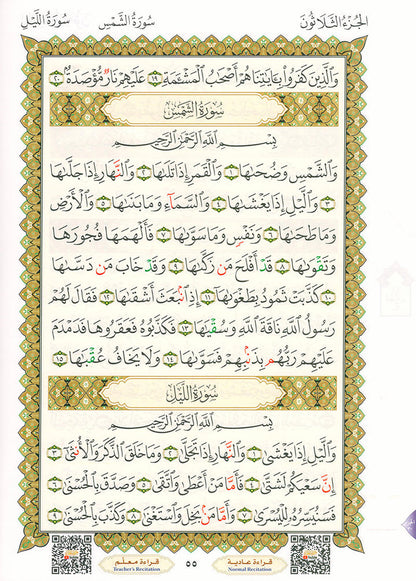 الجزء الثلاثون
سورة الشمس
سورة الليل
وَٱلَّذِينَ كَفَرُوا۟ بِـَٔايَـٰتِنَا هُمْ أَصْحَـٰبُ ٱلْمَشْـَٔمَةِ ١٩ عَلَيْهِمْ نَارٌ مُّؤْصَدَةٌۢ ٢٠
سورة الشمس
بِسْمِ ٱللَّهِ ٱلرَّحْمَـٰنِ ٱلرَّحِيمِ
وَٱلشَّمْسِ وَضُحَىٰهَا ١ وَٱلْقَمَرِ إِذَا تَلَىٰهَا ٢ وَٱلنَّهَارِ إِذَا جَلَّىٰهَا
٣ وَٱلَّيْلِ إِذَا يَغْشَىٰهَا ٤ وَٱلسَّمَآءِ وَمَا بَنَىٰهَا ٥ وَٱلْأَرْضِ
وَمَا طَحَىٰهَا ٦ وَنَفْسٍ وَمَا سَوَّىٰهَا ٧ فَأَلْهَمَهَا فُجُورَهَا
وَتَقْوَىٰهَا ٨ قَدْ أَفْلَحَ مَن زَكَّىٰهَا ٩ وَقَدْ خَابَ مَن دَسَّىٰهَا
١٠ كَذَّبَتْ ثَمُودُ بِطَغْوَىٰهَآ ١١ إِذِ ٱنۢبَعَثَ أَشْقَىٰهَا ١٢ فَقَالَ لَهُمْ
رَسُولُ ٱللَّهِ نَاقَةَ ٱللَّهِ وَسُقْيَـٰهَا ١٣ فَكَذَّبُوهُ فَعَقَرُوهَا فَدَمْدَمَ
عَلَيْهِمْ رَبُّهُم بِذَنۢبِهِمْ فَسَوَّىٰهَا ١٤ وَلَا يَخَافُ عُقْبَـٰهَا ١٥
سورة الليل
بِسْمِ ٱللَّهِ ٱلرَّحْمَـٰنِ ٱلرَّحِيمِ
وَٱلَّيْلِ إِذَا يَغْشَىٰ ١ وَٱلنَّهَارِ إِذَا تَجَلَّىٰ ٢ وَمَا خَلَقَ ٱلذَّكَرَ وَٱلْأُنثَىٰٓ ٣
إِنَّ سَعْيَكُمْ لَشَتَّىٰ ٤ فَأَمَّا مَنْ أَعْطَىٰ وَٱتَّقَىٰ ٥ وَصَدَّقَ بِٱلْحُسْنَىٰ ٦
فَسَنُيَسِّرُهُۥ لِلْيُسْرَىٰ ٧ وَأَمَّا مَنۢ بَخِلَ وَٱسْتَغْنَىٰ ٨ وَكَذَّبَ بِٱلْحُسْنَىٰ ٩
قراءة عادية
Normal Recitation
٥٥
قراءة معلم
Teacher's Recitation